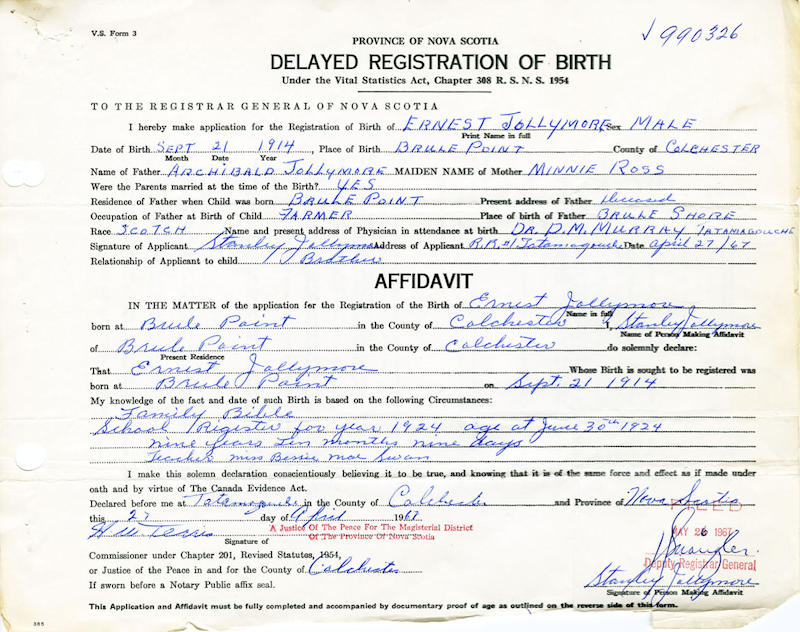 V.S. Form 3
990326
PROVINCE OF NOVA SCOTIA
DELAYED REGISTRATION OF BIRTH
Under the Vital Statistics Act, Chapter 308 R. S. N. S. 1954
TO THE REGISTRAR GENERAL OF NOVA SCOTIA
I hereby make application for the Registration of Birth of ERNEST JOLLYMORE Sex MALE
Print Name in full
Date of Birth SEPT 21 1914, Place of Birth BRULE POINT County of COLCHESTER
Month Date Year
Name of Father ARCHIBALD JOLLYMORE MAIDEN NAME of Mother MINNIE ROSS
Were the Parents married at the time of the Birth? YES
Residence of Father when Child was born BRULE POINT Present address of Father Deceased
Occupation of Father at Birth of Child FARMER Place of birth of Father BRULE SHORE
Race SCOTCH Name and present address of Physician in attendance at birth DR. D.M. MURRAY TATAMAGOUCHE
Signature of Applicant Stanley Jollymore Address of Applicant R.R.#1 Tatamagouche Date April 27/67
Relationship of Applicant to child Brother
AFFIDAVIT
IN THE MATTER of the application for the Registration of the Birth of Ernest Jollymore
Name in full
born at Brule Point in the County of Colchester I, Stanley Jollymore
Name of Person Making Affidavit
of Brule Point in the County of Colchester do solemnly declare:
Present Residence
That Ernest Jollymore Whose Birth is sought to be registered was
born at Brule Point on Sept. 21 1914
My knowledge of the fact and date of such Birth is based on the following Circumstances:
Family Bible
School Register for year 1924 age at June 30th 1924
nine years ten months nine days
Teacher Miss Bessie Mae Swan
I make this solemn declaration conscientiously believing it to be true, and knowing that it is of the same force and effect as if made under
oath and by virtue of The Canada Evidence Act.
Declared before me at Tatamagouche in the County of Colchester and Province of Nova Scotia
this 27 day of April 1967
A Justice Of The Peace For The Magisterial District
Of The Province Of Nova Scotia
FILED
MAY 26 1967
Signature of
Deputy Registrar General
Commissioner under Chapter 201, Revised Statutes, 1954,
or Justice of the Peace in and for the County of Colchester
Stanley Jollymore
If sworn before a Notary Public affix seal.
Signature of Person Making Affidavit
This Application and Affidavit must be fully completed and accompanied by documentary proof of age as outlined on the reverse side of this form.
385